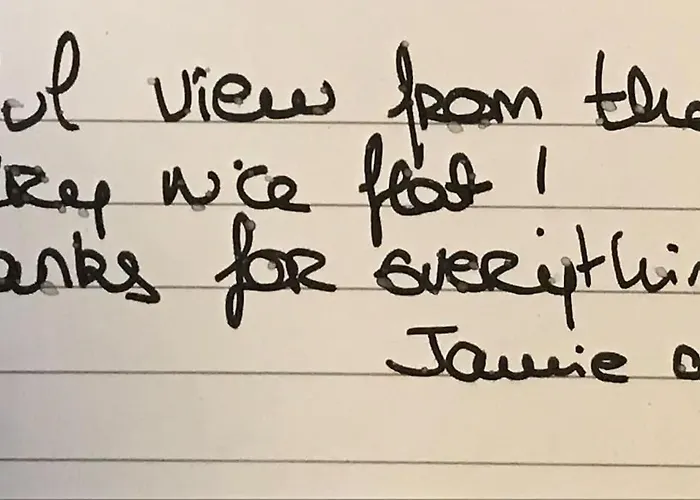 ul view from the
ery nice flat!
anks for everythin
Jamie a